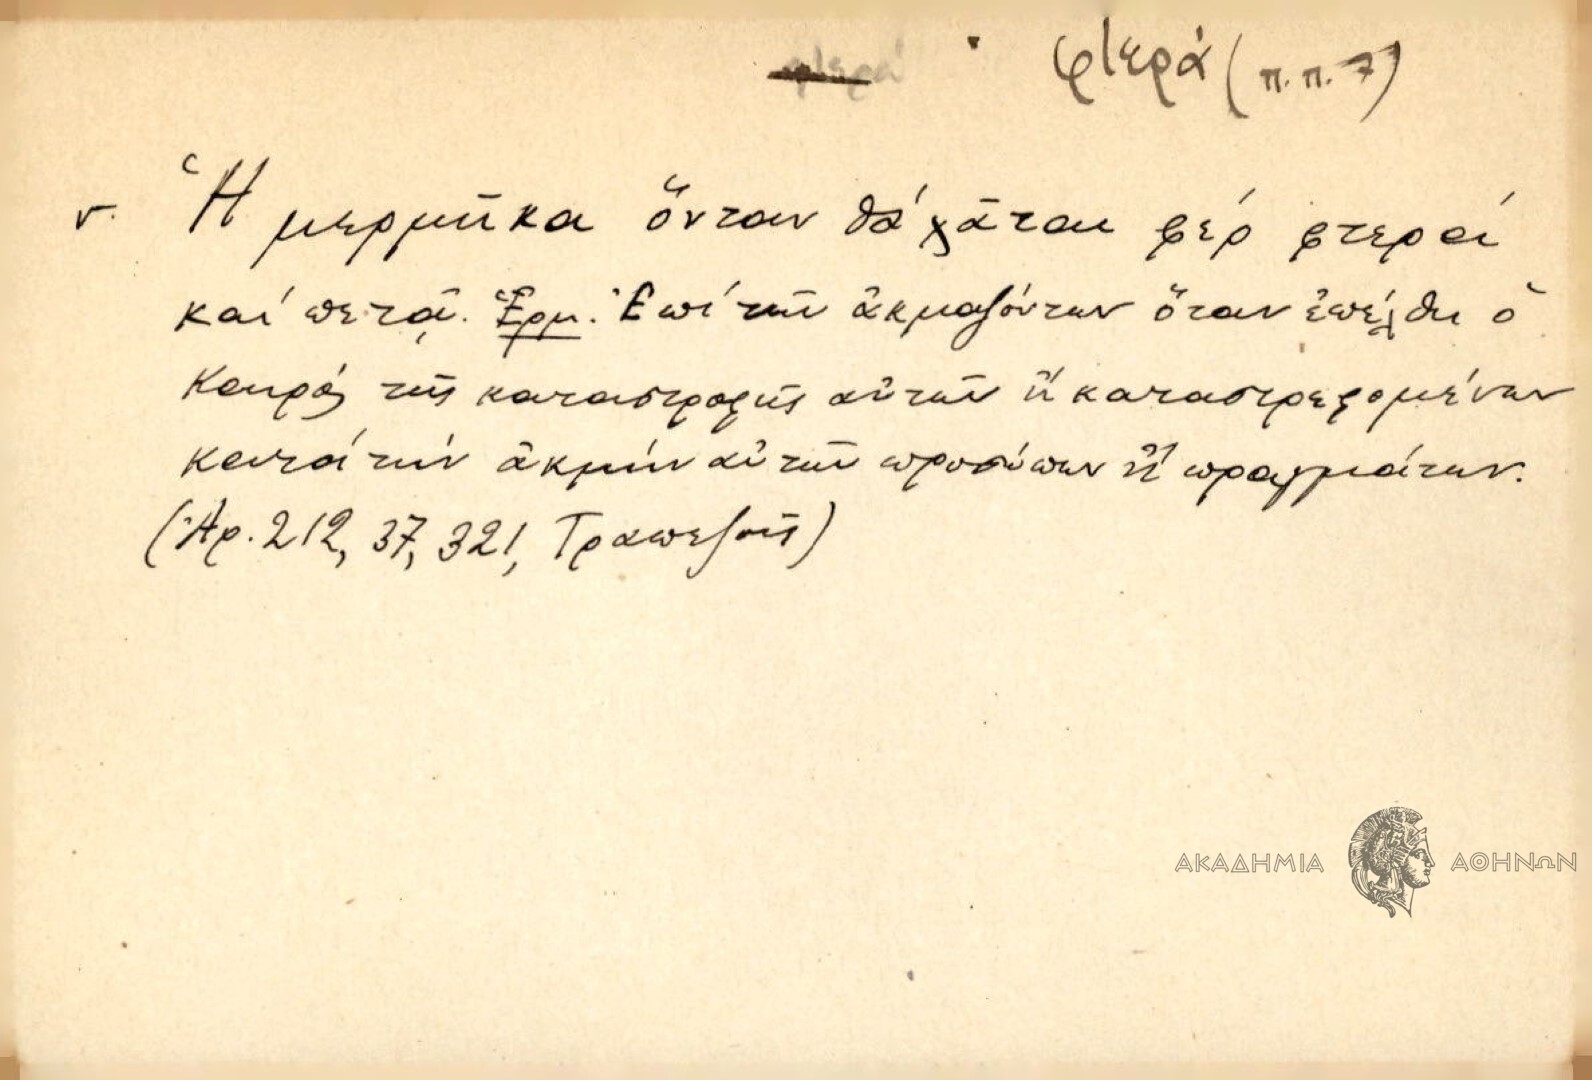 φτερά (π.π. 7)
Ἡ μερμῆκα ὅνταν θὰ χᾶται φέρ φτερά
καί πετᾷ. Ἑρμ. Ἐπί τῶν ἀκμαζόντων ὅταν ἐπέλθῃ ὁ
καιρός τῆς καταστροφῆς αὐτῶν ἤ καταστρεφομένων
κατά τήν ἀκμήν αὐτῶν προσώπων ἤ πραγμάτων.
(Ἀρ. 212, 37, 321, Τραπεζοῦς)
ΑΚΑΔΗΜΙΑ ΑΘΗΝΩΝ